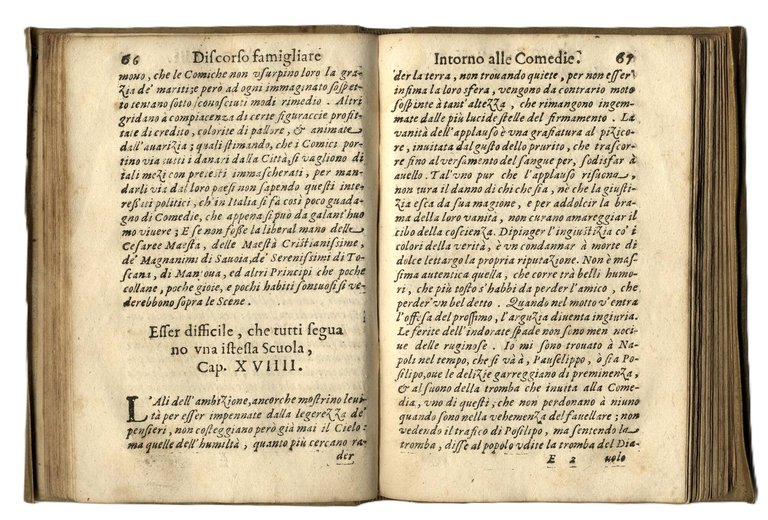 66 Discorso famigliare
mono, che le Comiche non vsurpino loro la gra-
zia de' mariti; e però ad ogni immaginato sospet-
to tentano sotto sconosciuti modi rimedio. Altri
gridano à compiacenza di certe figuraccie profit-
tate di credito, colorite di pallore, & animate
dall'auarizia; quali stimando, che i Comici por-
tino via tutti i danari dalla Città, si vagliono di
tali mezi con pretesti immascherati, per man-
darli via dal loro paesi non sapendo questi inte-
ressati politici, ch'in Italia si fà così poco guada-
gno di Comedie, che appena si può da galant'huo
mo viuere; E se non fosse la liberal mano delle
Cesaree Maestà, delle Maestà Cristianissime,
de' Magnanimi di Sauoia, de' Serenissimi di To-
scana, di Mantoua, ed altri Principi che poche
collane, poche gioie, e pochi habiti sontuosi si ve-
derebbono sopra le Scene.
Esser difficile, che tutti segua
no vna istessa Scuola,
Cap. XVIIII.
L'Ali dell'ambizione, ancorche mostrino leui-
tà per esser impennate dalla legerezza de'
pensieri, non costeggiano però già mai il Cielo:
ma quelle dell'humiltà, quanto più cercano ra-
der
Intorno alle Comedie. 67
der la terra, non trouando quiete, per non esser
infima la loro sfera, vengono da contrario moto
sospinte à tant'altezza, che rimangono ingem-
mate dalle più lucide stelle del firmamento. La
vanità dell'applauso è vna grafiatura al pizico-
re, inuitata dal gusto dello prurito, che trascor-
re fino al versamento del sangue per, sodisfar à
quello. Tal'vno pur che l'applauso risuona,
non cura il danno di chi che sia, nè che la giusti-
zia esca da sua magione, e per addolcir la bra-
ma della loro vanità, non curano amareggiar il
cibo della coscienza. Dipinger l'ingiustizia co' i
colori della verità, è vn condannar à morte di
dolce lettargo la propria riputazione. Non è mas-
sima autentica quella, che corre trà belli humo-
ri, che più tosto s'habbi da perder l'amico, che
perder'vn bel detto. Quando nel motto v'entra
l'offesa del prossimo, l'arguzia diuenta ingiuria.
Le ferite dell'indorate spade non sono men nociue
delle ruginose. Io mi sono trouato à Na-
poli nel tempo, che si và à, Pauselippo, ò sia Po-
silipo, oue le delizie garreggiano di preminenza,
& al suono della tromba che inuita alla Come-
dia, vno di questi; che non perdonano à niuno
quando sono nella vehemenza del fauellare; non
vedendo il trafico di Posilipo, ma sentendo la
tromba, disse al popolo vdite la tromba del Dia-
E 2 uolo